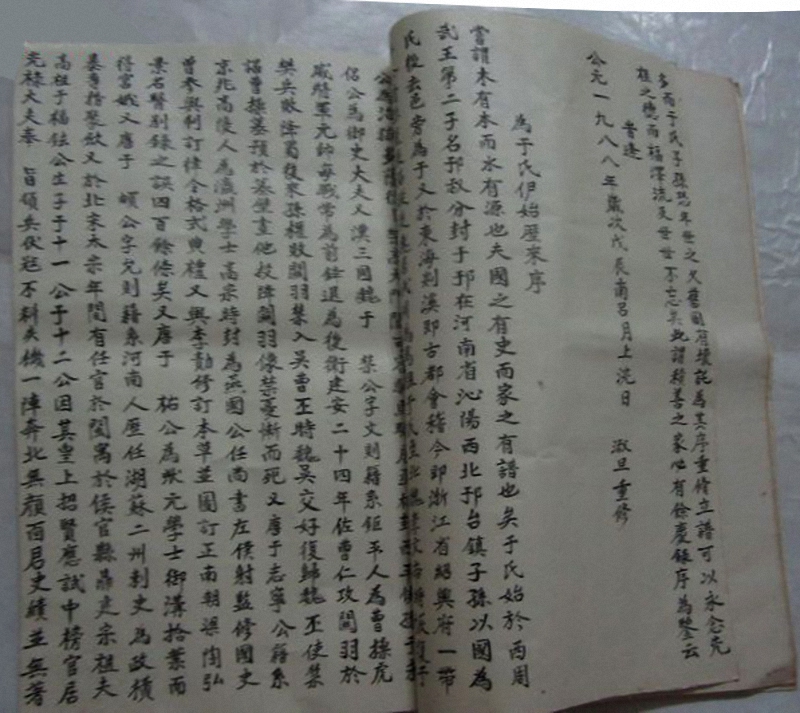 多而于氏子孫恐年世之久舊圖有壞託為其序重修立譜可以永念先
祖之德而福澤流及世世不忘矣此謂積善之家必有餘慶錄序為鑒云
晉達
公元一九八八年歲次戊辰南呂月上浣日 淑旦重修
為于氏伊始歷來序
嘗謂木有本而水有源也夫國之有史而家之有譜也矣于氏始於西周
武王第二子名邘叔分封于邘在河南省沁陽西北邘台鎮子孫以國為
氏後去邑旁為于又於東海剡溪即古都會稽今即浙江省紹興府一帶
侶公為御史大夫又漢三國魏于 禁公字文則籍系鉅平人為曹操虎
威將軍元帥每戰常為前鋒退為後衛建安二十四年佐曹仁攻關羽於
樊矣敗降蜀後來孫權敗關羽禁入吳曹丕時魏吳交好復歸魏丕使禁
謁曹操墓預於墓壁畫他投降關羽像禁憂慚而死又唐于志寧公籍系
京兆高陵人為瀛州學士高宗時封為燕國公任尚書左僕射監修國史
曾參與制訂律令格式典禮又與李勣修訂本草並圖訂正南朝梁陶弘
景名醫別錄之誤四百餘條矣又唐于 祐公為狀元學士御溝拾葉而
得宮娥又唐于 頔公字允則籍系河南人歷任湖蘇二州刺史為政橫
暴專橫聚歛又於北宋太宗年間有任官於閩寓於侯官縣聶是宗祖夫
高祖于福往公生子于十一公于十二公因其皇上招賢應試中榜官居
光祿大夫奉 旨領兵伏寇不料失機一陣奔北無顏面君史績並無著